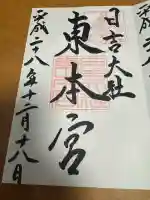 日吉大社
東本宮
平成二十八年十二月十八日
平成